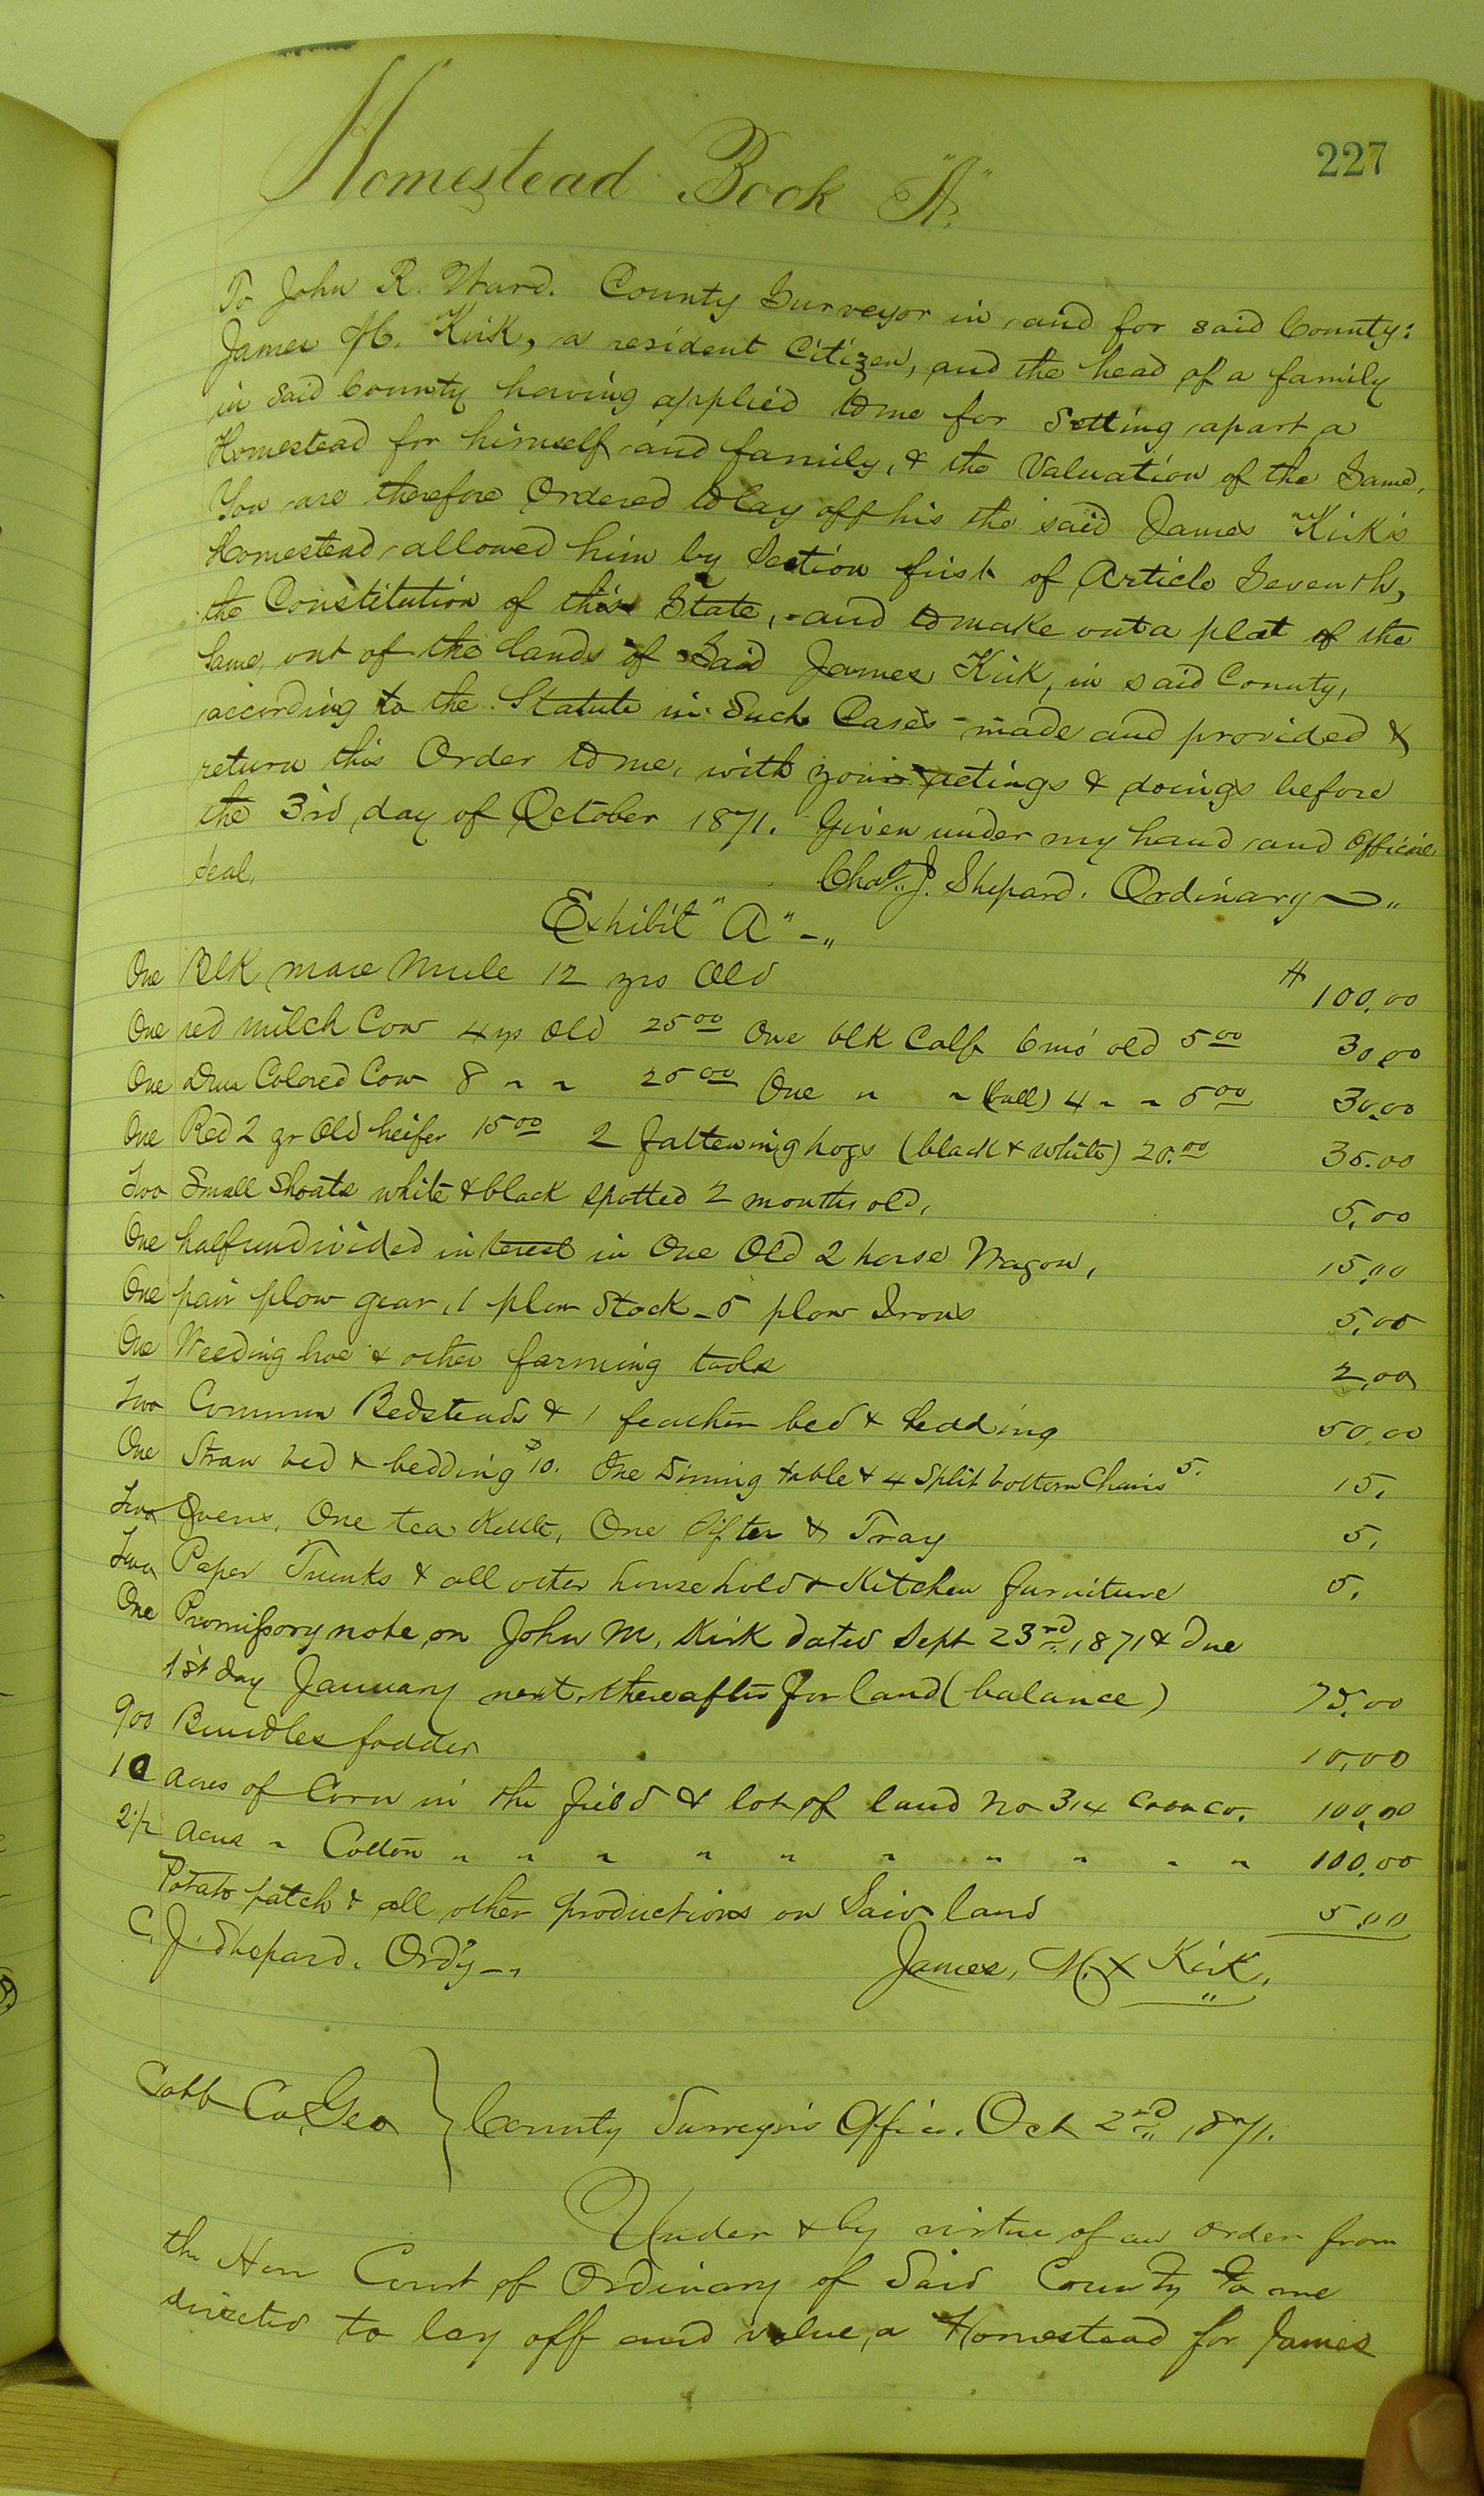 227
Homestead Book "A."
To John R. Ward. County Surveyor in, and for said County:
James M. Kirk, a resident Citizen, and the head of a family
in said County having applied to me for Setting apart a
Homestead for himself and family, & the Valuation of the Same.
You are therefore Ordered to lay off his the said James Kirk's
Homestead, allowed him by Section first of Article Seventh,
the Constitution of this State, and to make out a plat of the
Same, out of the lands of Said James Kirk, in said County,
according to the Statute in Such Cases made and provided &
return this Order to me, with your actings & doings before
the 3rd day of October 1871. Given under my hand and official
seal,
Chas. J. Shepard. Ordinary
Exhibit "A"
One Blk mare Mule 12 yrs Old $ 100.00
One red milch Cow 4 yrs Old 25 00 One blk Calf 6 mo's old 5 00 30.00
One Dun Colored Cow 8 " " 25 00 One " " (bull) 4 " " 5 00 30.00
One Red 2 yr Old heifer 15 00 2 fattening hogs (black & white) 20.00 35.00
Two Small Shoats white & black spotted 2 months old, 5.00
One half undivided interest in One Old 2 horse Wagon, 15.00
One pair plow gear, 1 plow Stock - 5 plow Irons 5.00
One Weeding hoe & other farming tools 2.00
Two Common Bedsteads & 1 feather bed & bedding 50.00
One Straw bed & bedding $10. One Dining table & 4 Split bottom Chairs 5. 15.
Two Ovens, One tea Kettle, One Sifter & Tray 5.
Two Paper Trunks & all other household & Kitchen furniture 5.
One Promissory note on John M. Kirk dated Sept 23rd, 1871 & due
1st day January next, thereafter for land (balance) 75.00
900 Bundles fodder 10.00
10 acres of Corn in the field & lot of land No 314 Cobb Co. 100.00
2 1/2 acres " Cotton " " " " " " " " " " 100.00
Potato patch & all other productions on Said land 5.00
C. J. Shepard. Ord'y James, M. X Kirk.
Cobb Co, Geo } County Surveyor's Office. Oct 2nd 1871.
Under & by virtue of an order from
the Hon Court of Ordinary of Said County to me
directed to lay off and value, a Homestead for James